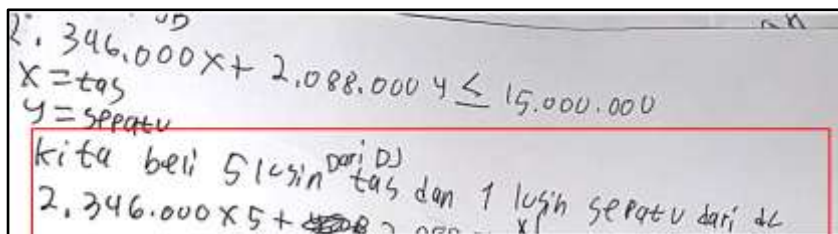 2.346.000 x + 2.088.000 y ≤ 15.000.000
x = tas
y = sepatu
kita beli 5 lusin Dari DJ tas dan 1 lusin sepatu dari
2.346.000 x 5 +